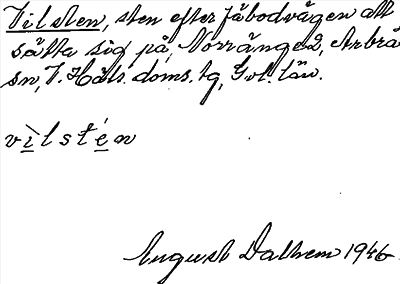 Vilsten, sten efter fäbodvägen att
sätta sig på, Norränge 2, Arbrå
sn, V. Häls. doms. tg, Gvl. län.
vìlstén
August Dalhem 1946.